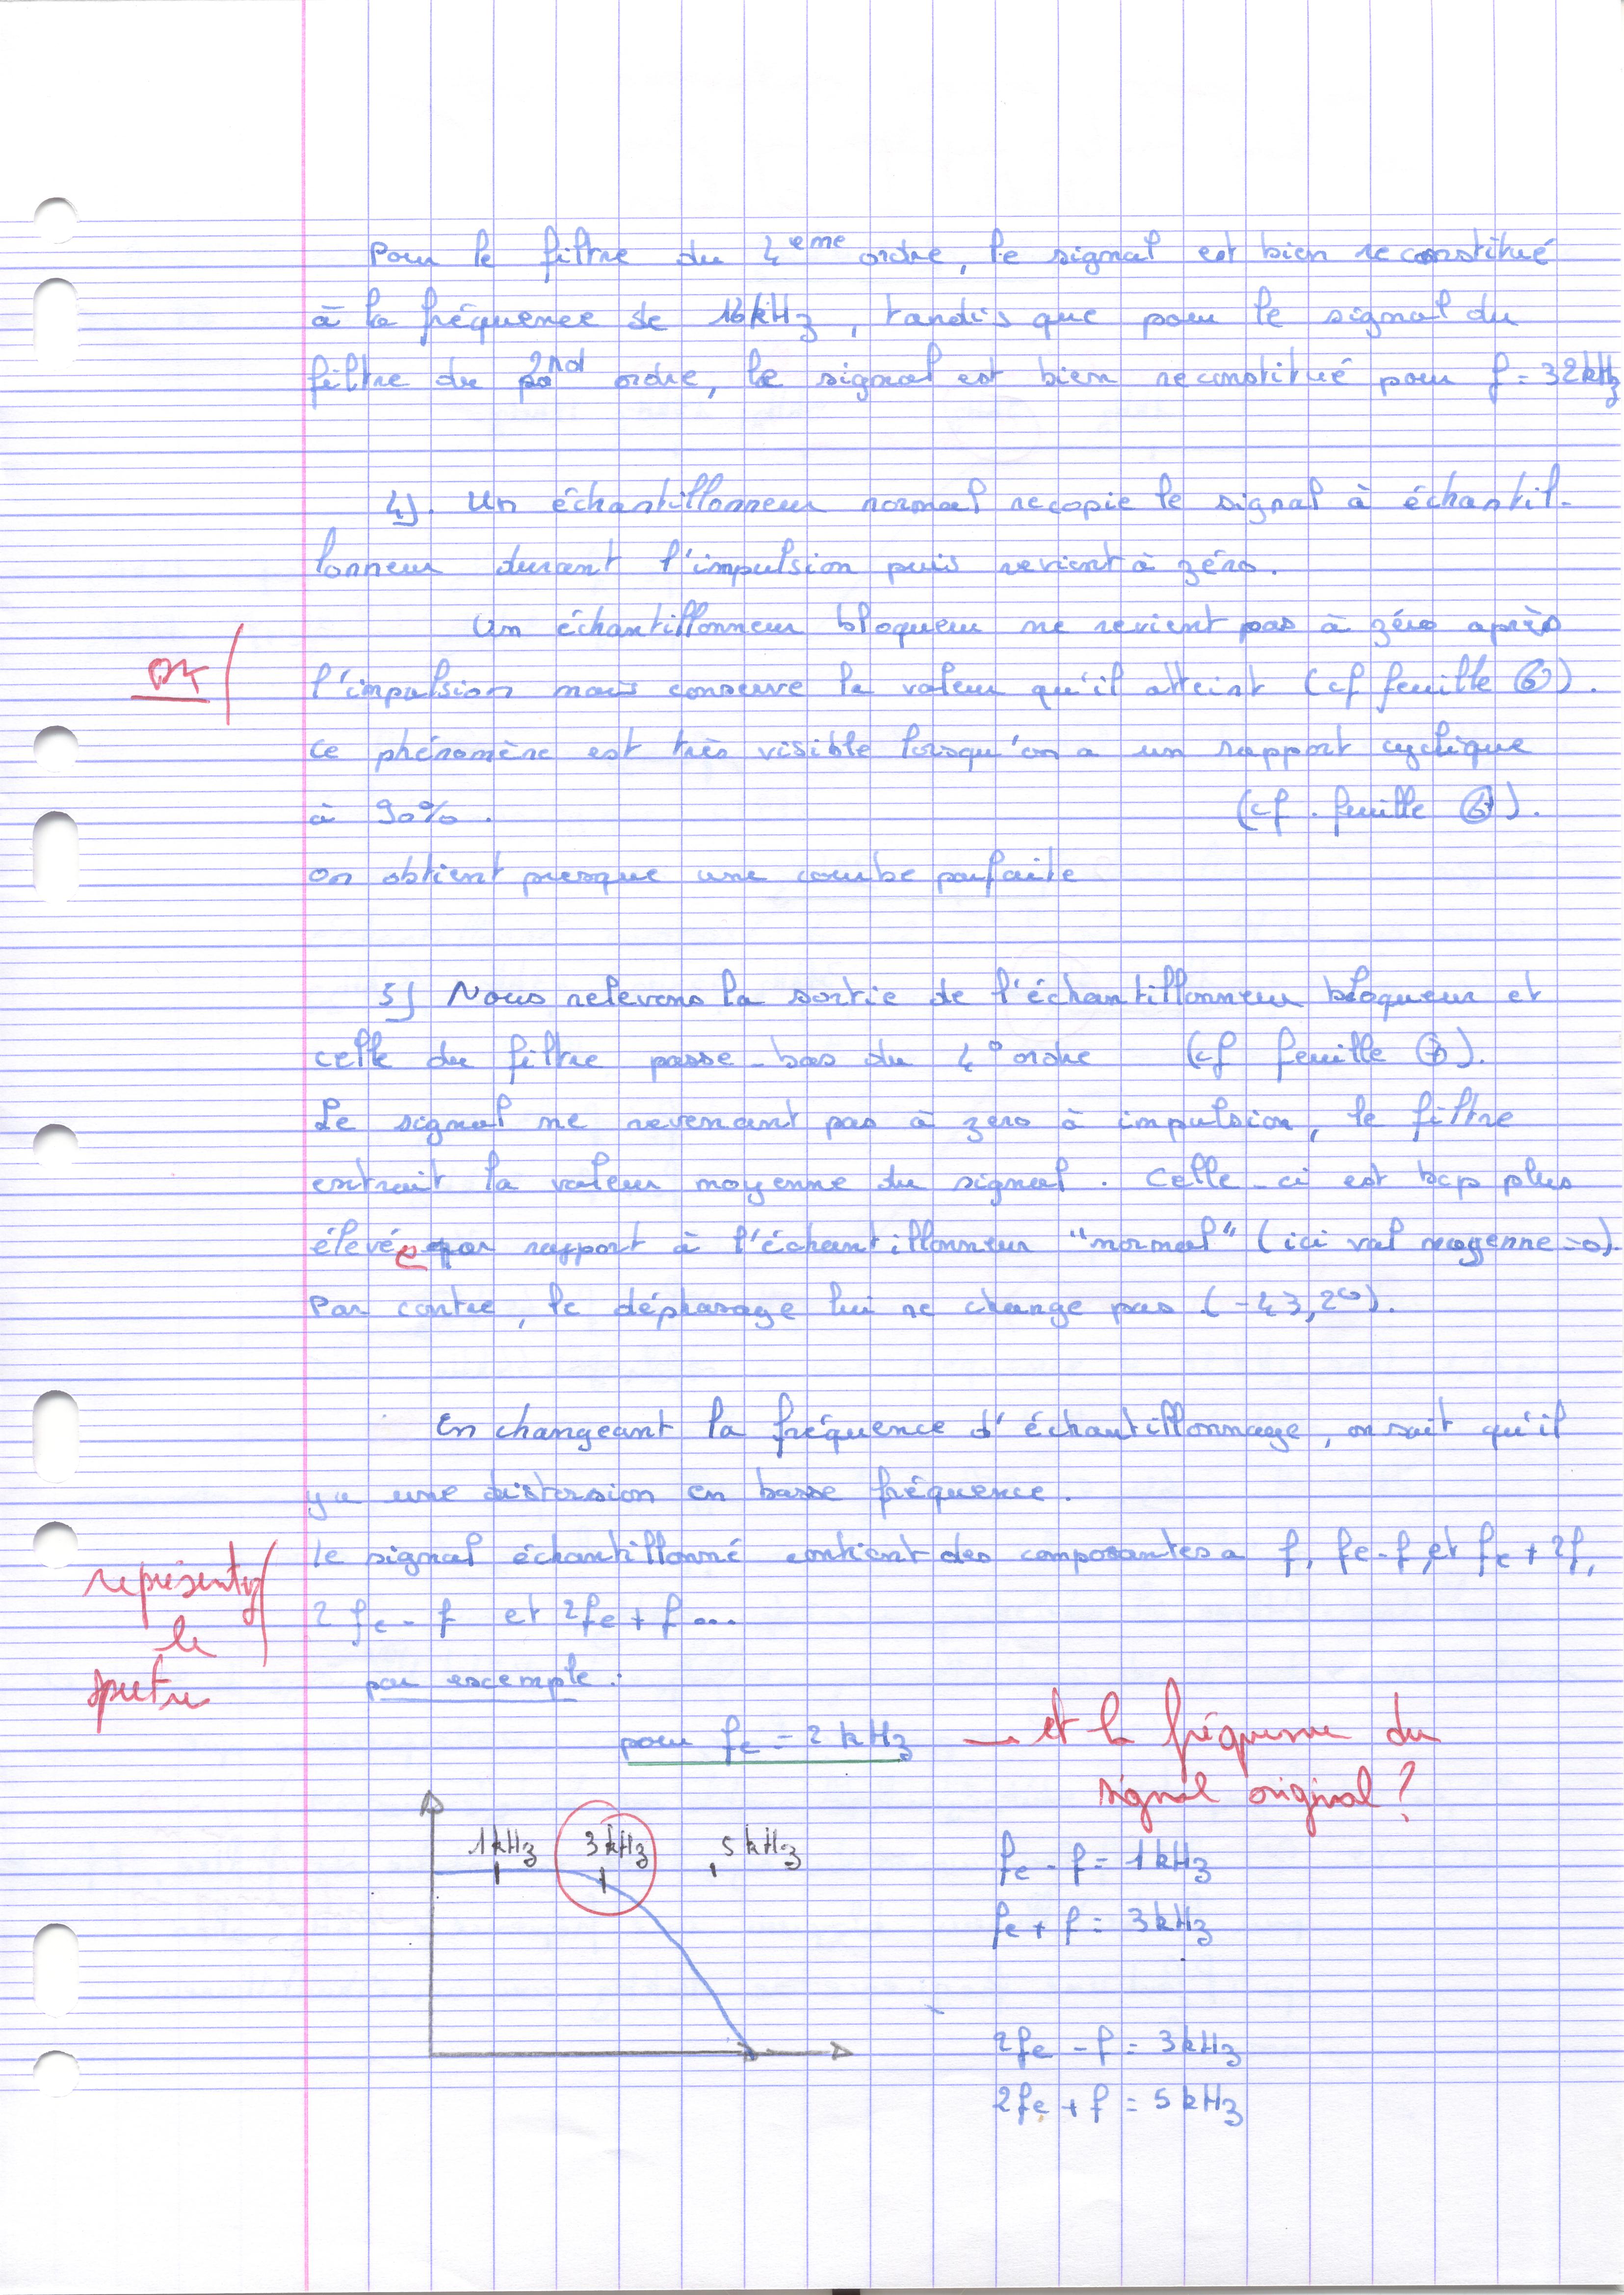 Pour le filtre du 4eme ordre, le signal est bien reconstitué
à la fréquence de 16kHz, tandis que pour le signal du
filtre du 2nd ordre, le signal est bien reconstitué pour f = 32kHz
4). Un échantillonneur normal recopie le signal à échantil-
lonneur durant l'impulsion puis revient à zéro.
Un échantillonneur bloqueur ne revient pas à zéro après
OK
l'impulsion mais conserve la valeur qu'il atteint (cf feuille 6).
Ce phénomène est très visible lorsqu'on a un rapport cyclique
à 90%. (cf. feuille).
on obtient presque une courbe parfaite
5) Nous relevons la sortie de l'échantillonneur bloqueur et
celle du filtre passe-bas du 4° ordre (cf feuille 7).
Le signal ne revenant pas à zéro à impulsion, le filtre
extrait la valeur moyenne du signal. Celle-ci est bcp plus
élevée par rapport à l'échantillonneur "normal" (ici val moyenne=0).
Par contre, le déphasage lui ne change pas (-43,2°).
En changeant la fréquence d'échantillonnage, on sait qu'il
y a une distorsion en basse fréquence.
le signal échantillonné contient des composantes a f, fe-f, et fe + 2f,
représentez
le
spectre
2fe - f et 2fe + f ...
par exemple :
pour fe = 2 kHz → et la fréquence du
signal original ?
1kHz 3kHz 5kHz
fe - f = 1kHz
fe + f = 3kHz
2fe - f = 3kHz
2fe + f = 5kHz